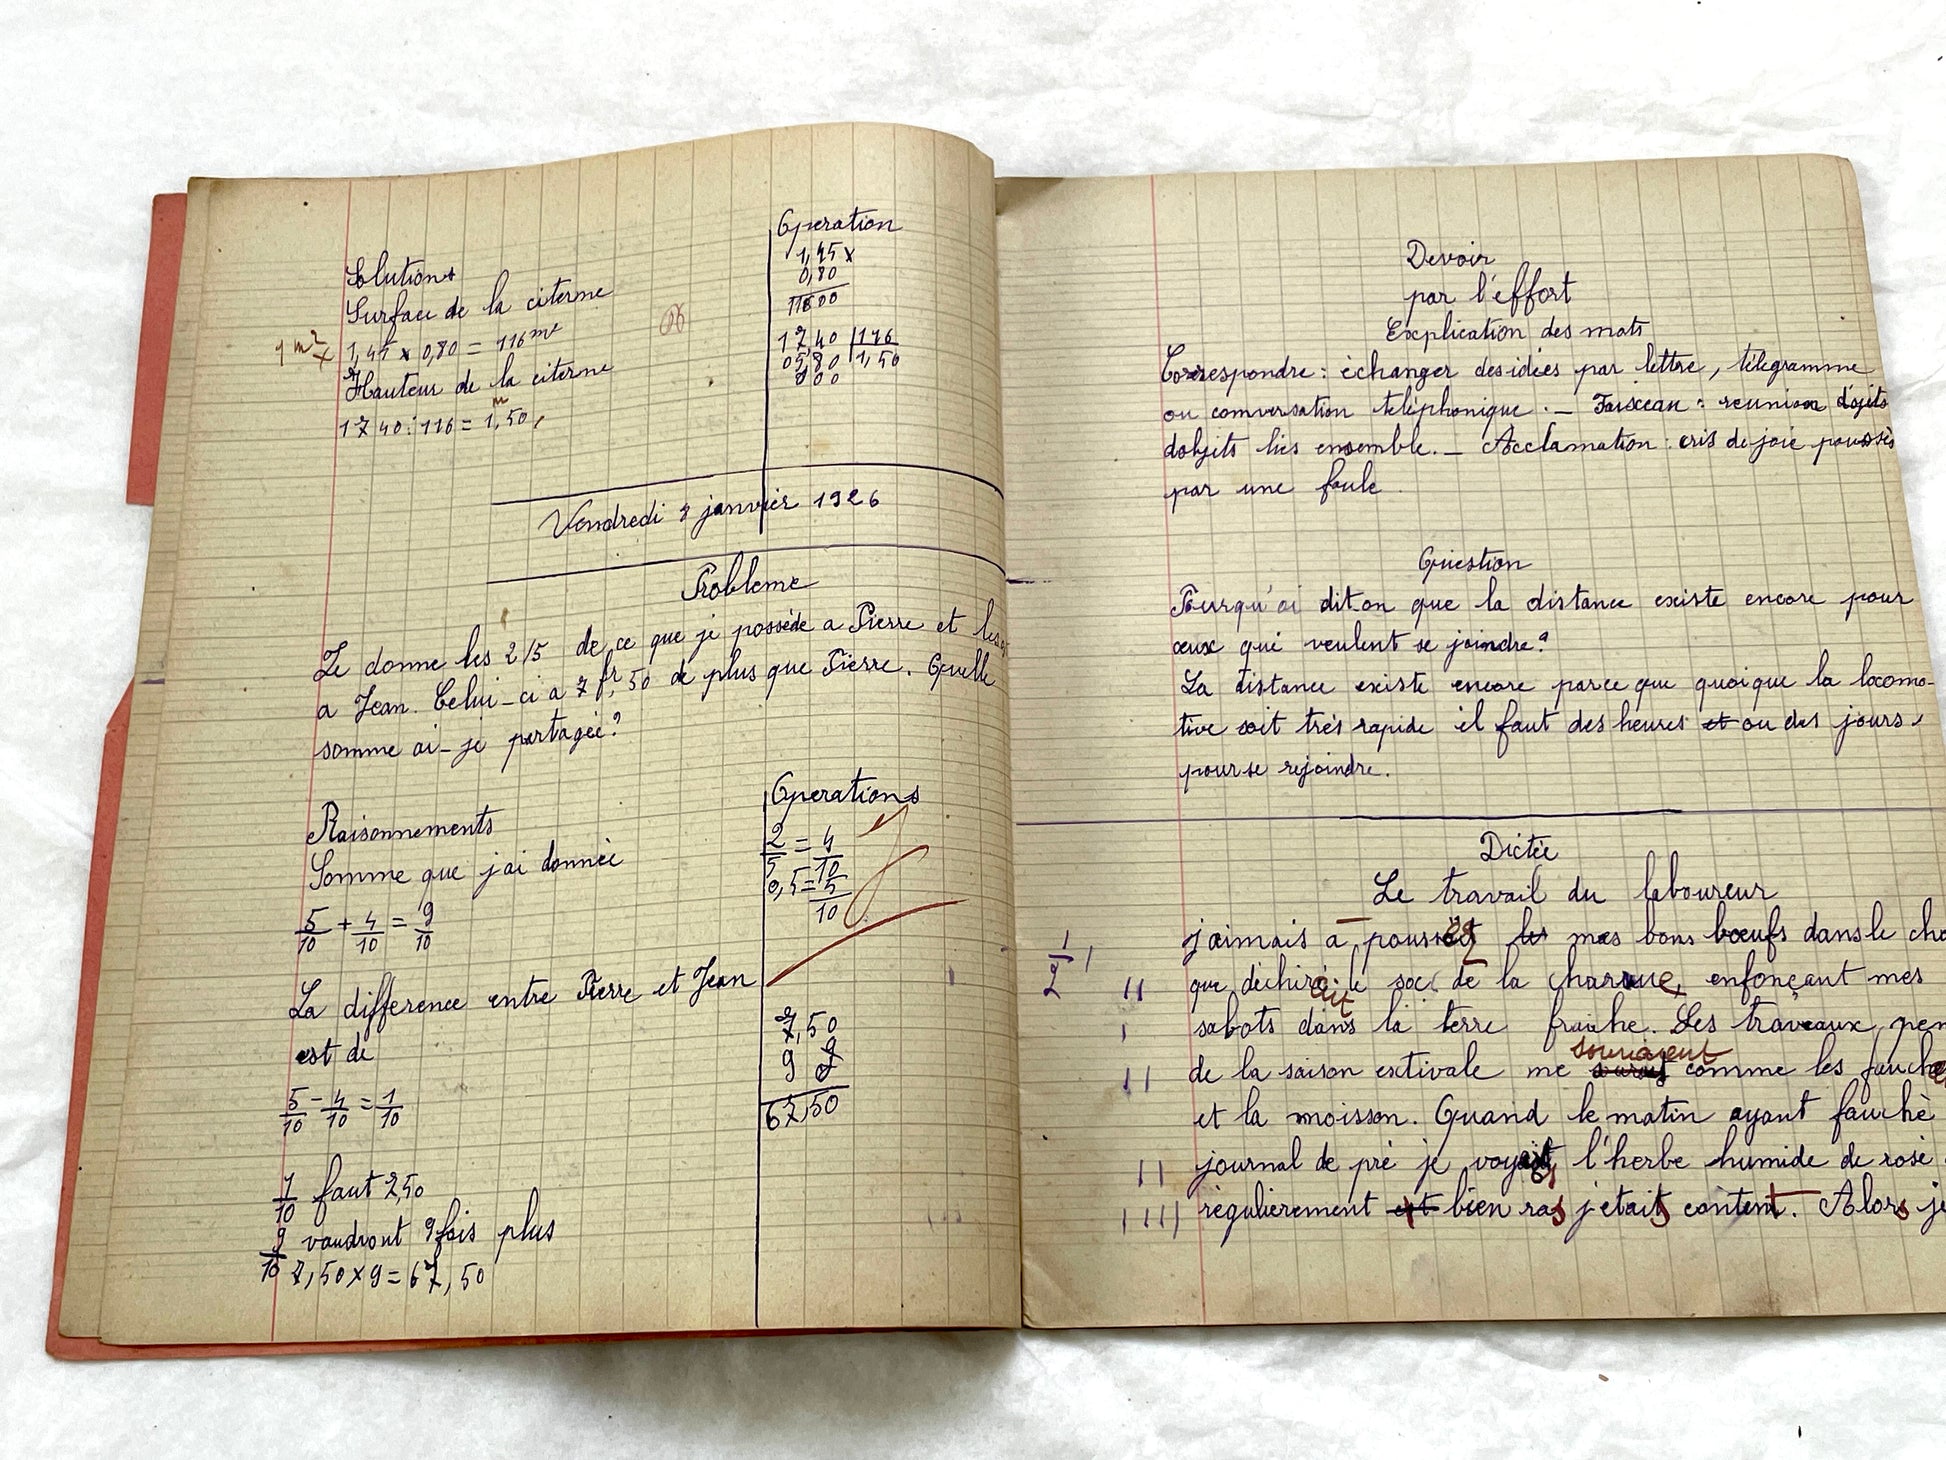 Solutions
Surface de la citerne
1 m2
x 1,45 x 0,80 = 116 m2
Hauteur de la citerne
m
1740 : 116 = 1,50
Operation
1,45 x
0,80
11600
1740 116
0580 1,50
000
Vendredi 8 janvier 1926
Probleme
Je donne les 2/5 de ce que je possède a Pierre et les
a Jean. Celui-ci a 7 fr, 50 de plus que Pierre. Quelle
somme ai-je partagée?
Raisonnements
Somme que j'ai donnée
5/10 + 4/10 = 9/10
La difference entre Pierre et Jean
est de
5/10 - 4/10 = 1/10
1/10 faut 7,50
9/10 vaudront 9 fois plus
7,50 x 9 = 67,50
Operations
2/5 = 4/10
0,5 = 5/10
7,50
9
67,50
Devoir
par l'effort
Explication des mots
Correspondre : échanger des idées par lettre, télégramme
ou conversation teléphonique. — Faisceau : reunion d'ojets
dobjets liés ensemble. — Acclamation : cris de joie poussés
par une foule.
Question
Pourqu'oi dit.on que la distance existe encore pour
ceux qui veulent se joindre?
La distance existe encore parce que quoique la locomo-
tive soit trés rapide il faut des heures et ou des jours,
pour se rejoindre.
Dictée
Le travail du laboureur
j'aimais à pousser les mes bons bœufs dans le cha
1/2
que déchirait le soc de la charrue, enfonçant mes
sabots dans la terre fraiche. Les traveaux pen
souriaient
de la saison estivale me comme les fauch
et la moisson. Quand le matin ayant fauchè
journal de pré je voyais l'herbe humide de rosé
règulièrement et bien ras j'étais content. Alors je